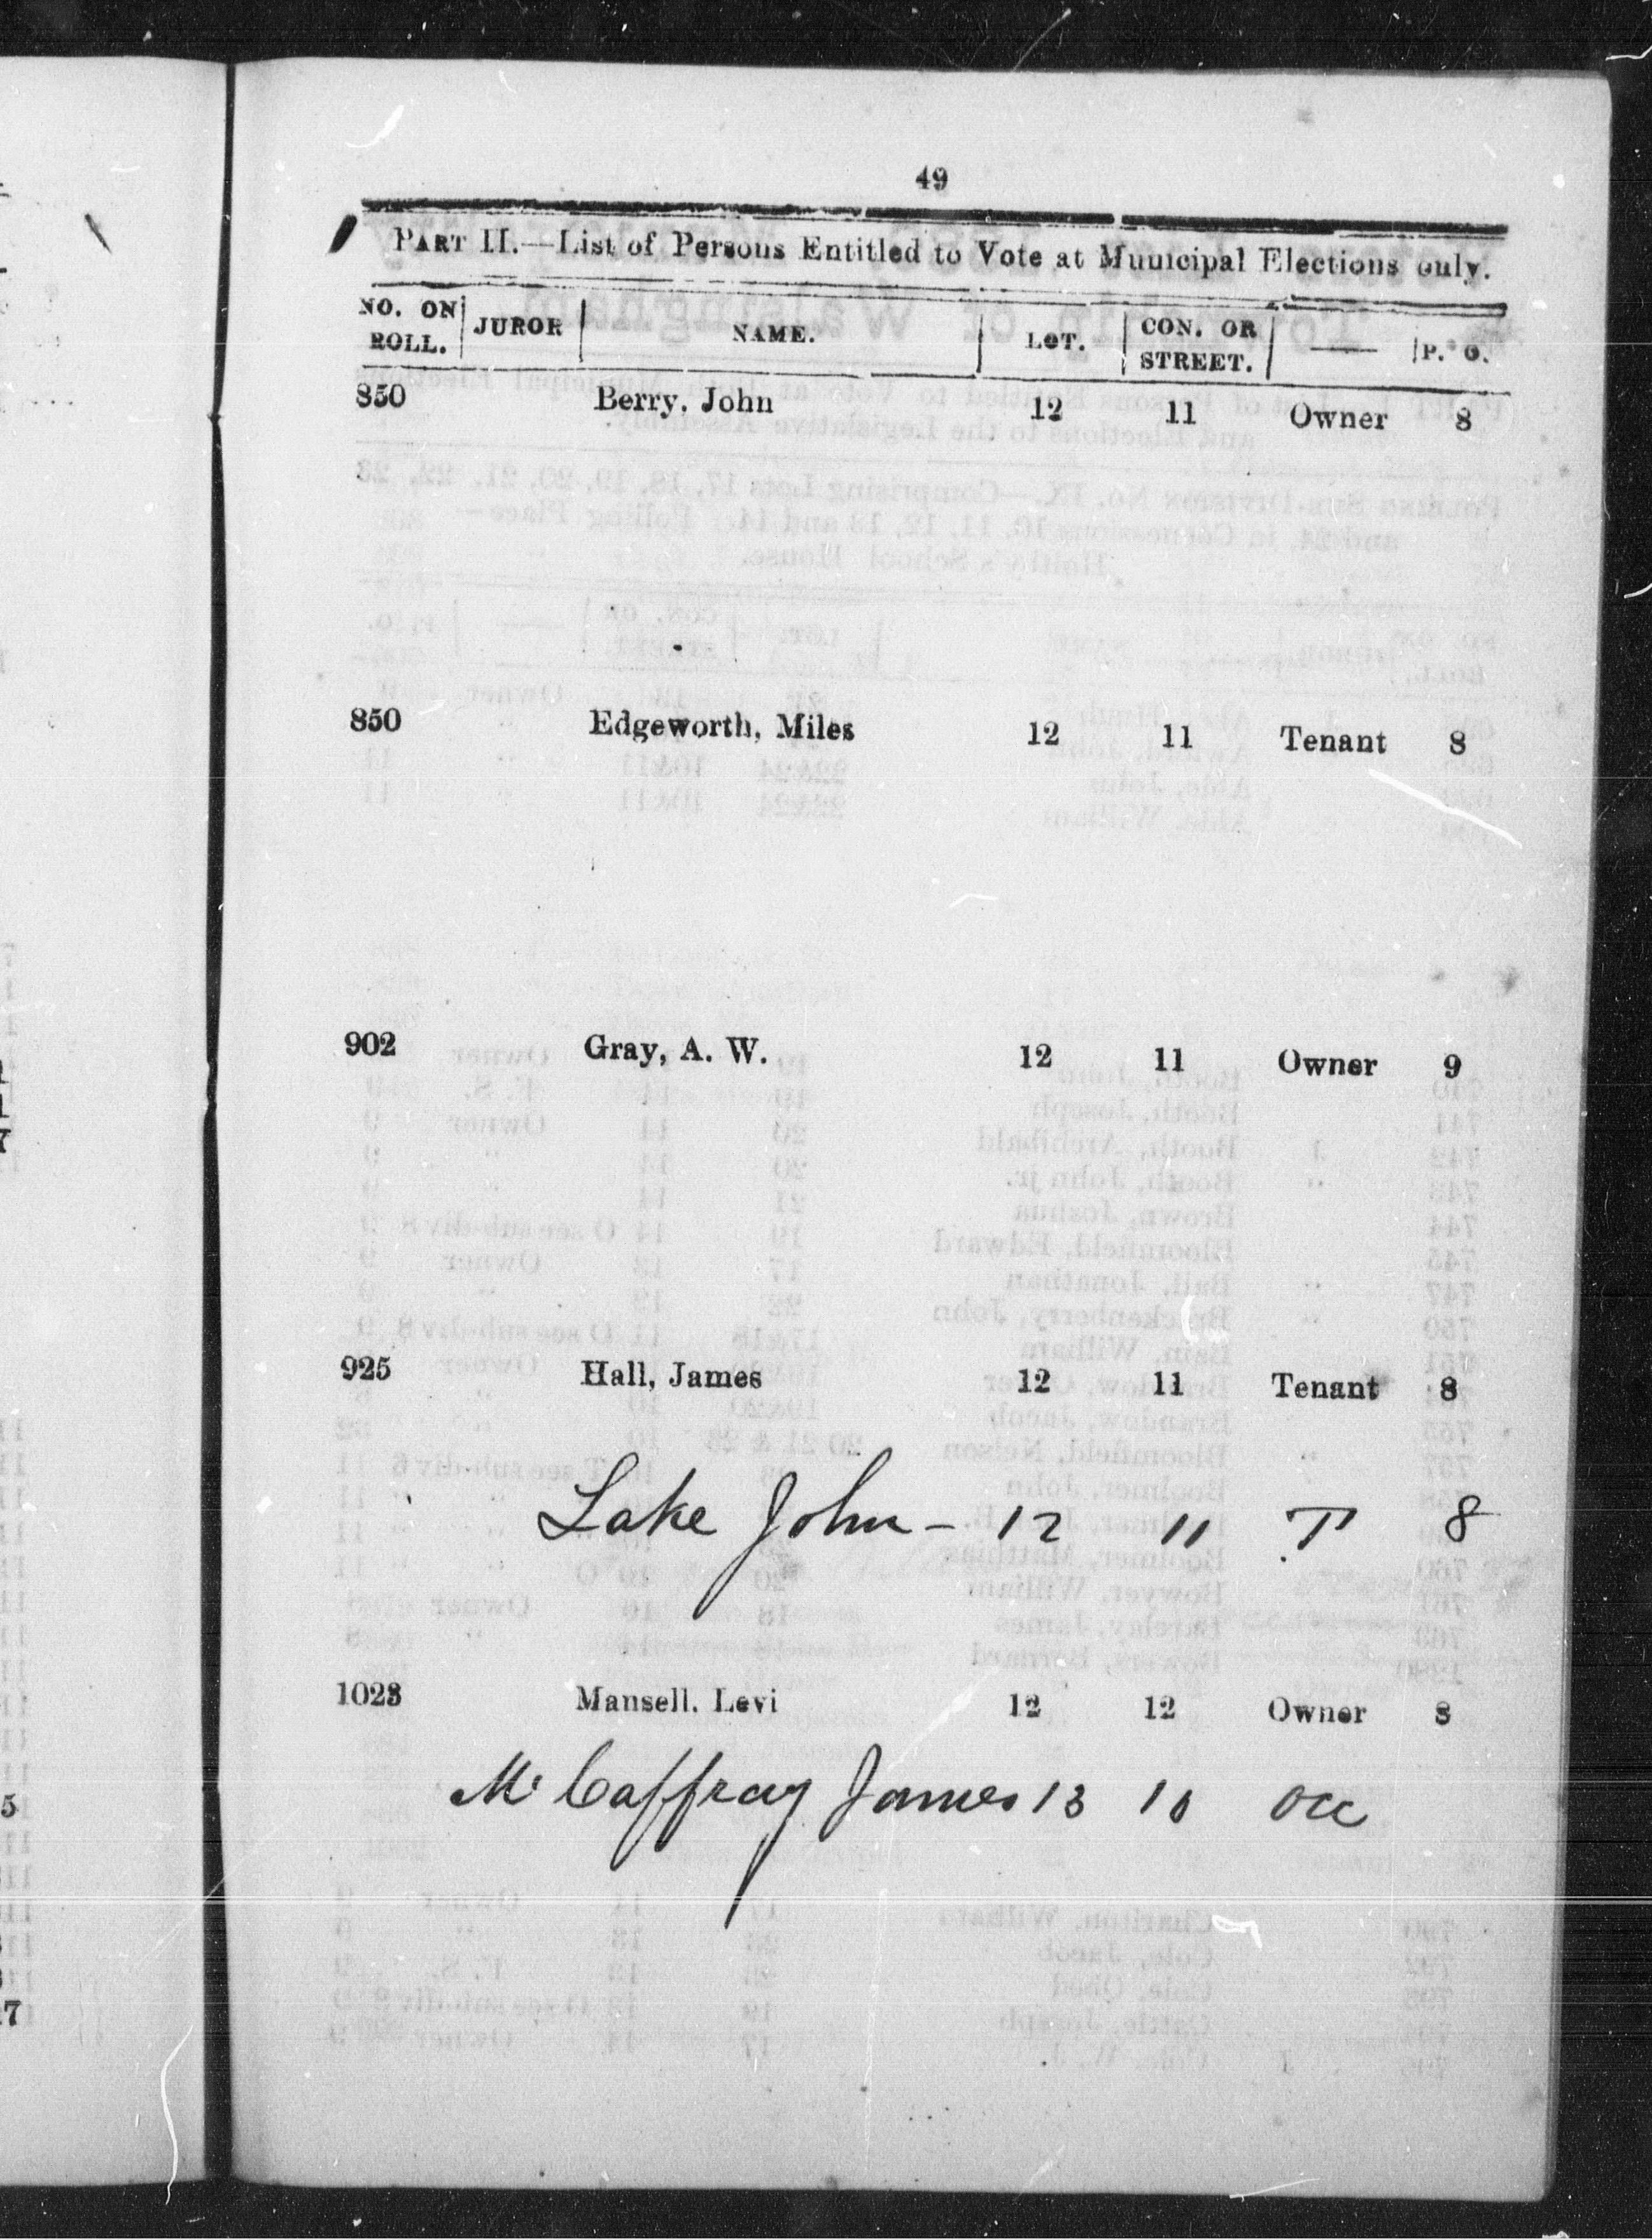 49
PART II.—List of Persons Entitled to Vote at Municipal Elections only.
NO. ON ROLL. JUROR NAME. LOT. CON. OR STREET. —— P. O.
850 Berry, John 12 11 Owner 8
850 Edgeworth, Miles 12 11 Tenant 8
902 Gray, A. W. 12 11 Owner 9
925 Hall, James 12 11 Tenant 8
Lake John – 12 11 T 8
1023 Mansell, Levi 12 12 Owner 8
Mc Caffray James 13 10 occ